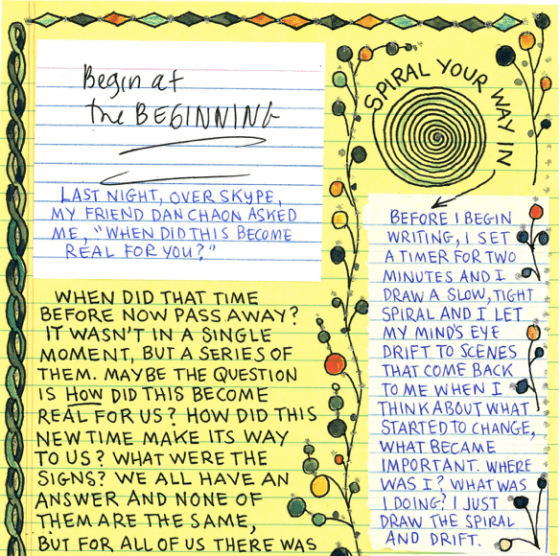 Begin at
the BEGINNING
LAST NIGHT, OVER SKYPE,
MY FRIEND DAN CHAON ASKED
ME, "WHEN DID THIS BECOME
REAL FOR YOU?"
WHEN DID THAT TIME
BEFORE NOW PASS AWAY?
IT WASN'T IN A SINGLE
MOMENT, BUT A SERIES OF
THEM. MAYBE THE QUESTION
IS HOW DID THIS BECOME
REAL FOR US? HOW DID THIS
NEW TIME MAKE ITS WAY
TO US? WHAT WERE THE
SIGNS? WE ALL HAVE AN
ANSWER AND NONE OF
THEM ARE THE SAME,
BUT FOR ALL OF US THERE WAS
SPIRAL YOUR WAY IN
BEFORE I BEGIN
WRITING, I SET
A TIMER FOR TWO
MINUTES AND I
DRAW A SLOW, TIGHT
SPIRAL AND I LET
MY MIND'S EYE
DRIFT TO SCENES
THAT COME BACK
TO ME WHEN I
THINK ABOUT WHAT
STARTED TO CHANGE,
WHAT BECAME
IMPORTANT. WHERE
WAS I? WHAT WAS
I DOING? I JUST
DRAW THE SPIRAL
AND DRIFT.